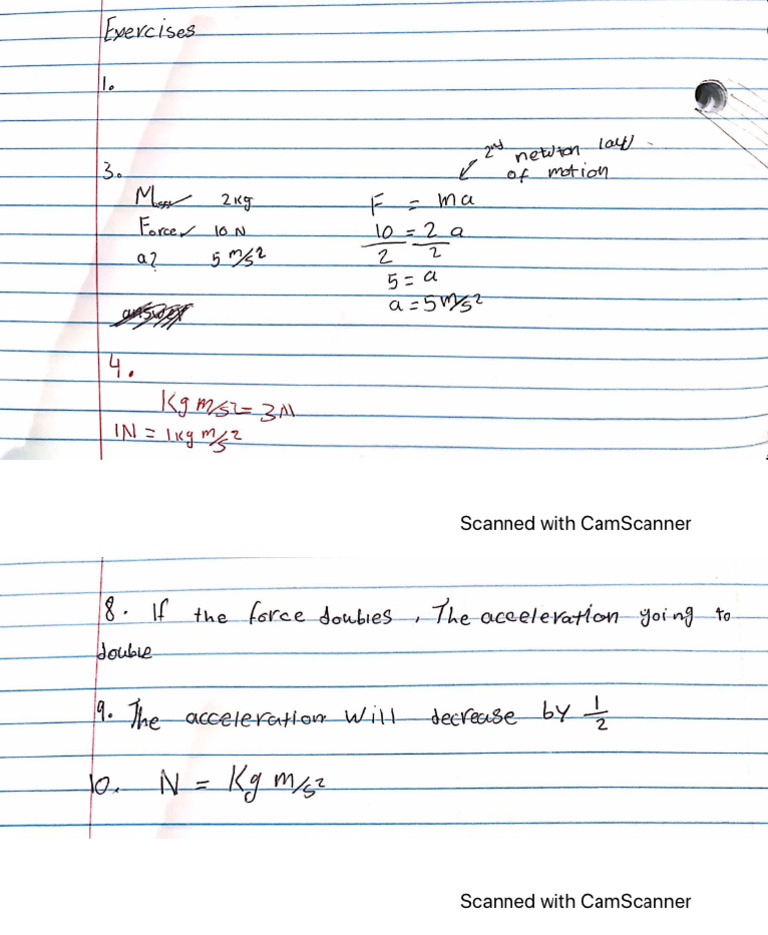 Exercises
1.
2nd newton law
of motion
3.
Mass 2kg F = ma
Force 10 N 10 = 2 a
2 2
a? 5 m/s2
5 = a
a = 5 m/s2
answer
4.
Kg m/s2 = 3N
1N = 1kg m/s2
Scanned with CamScanner
8. If the force doubles, The acceleration going to
double
9. The acceleration will decrease by 1/2
10. N = Kg m/s2
Scanned with CamScanner